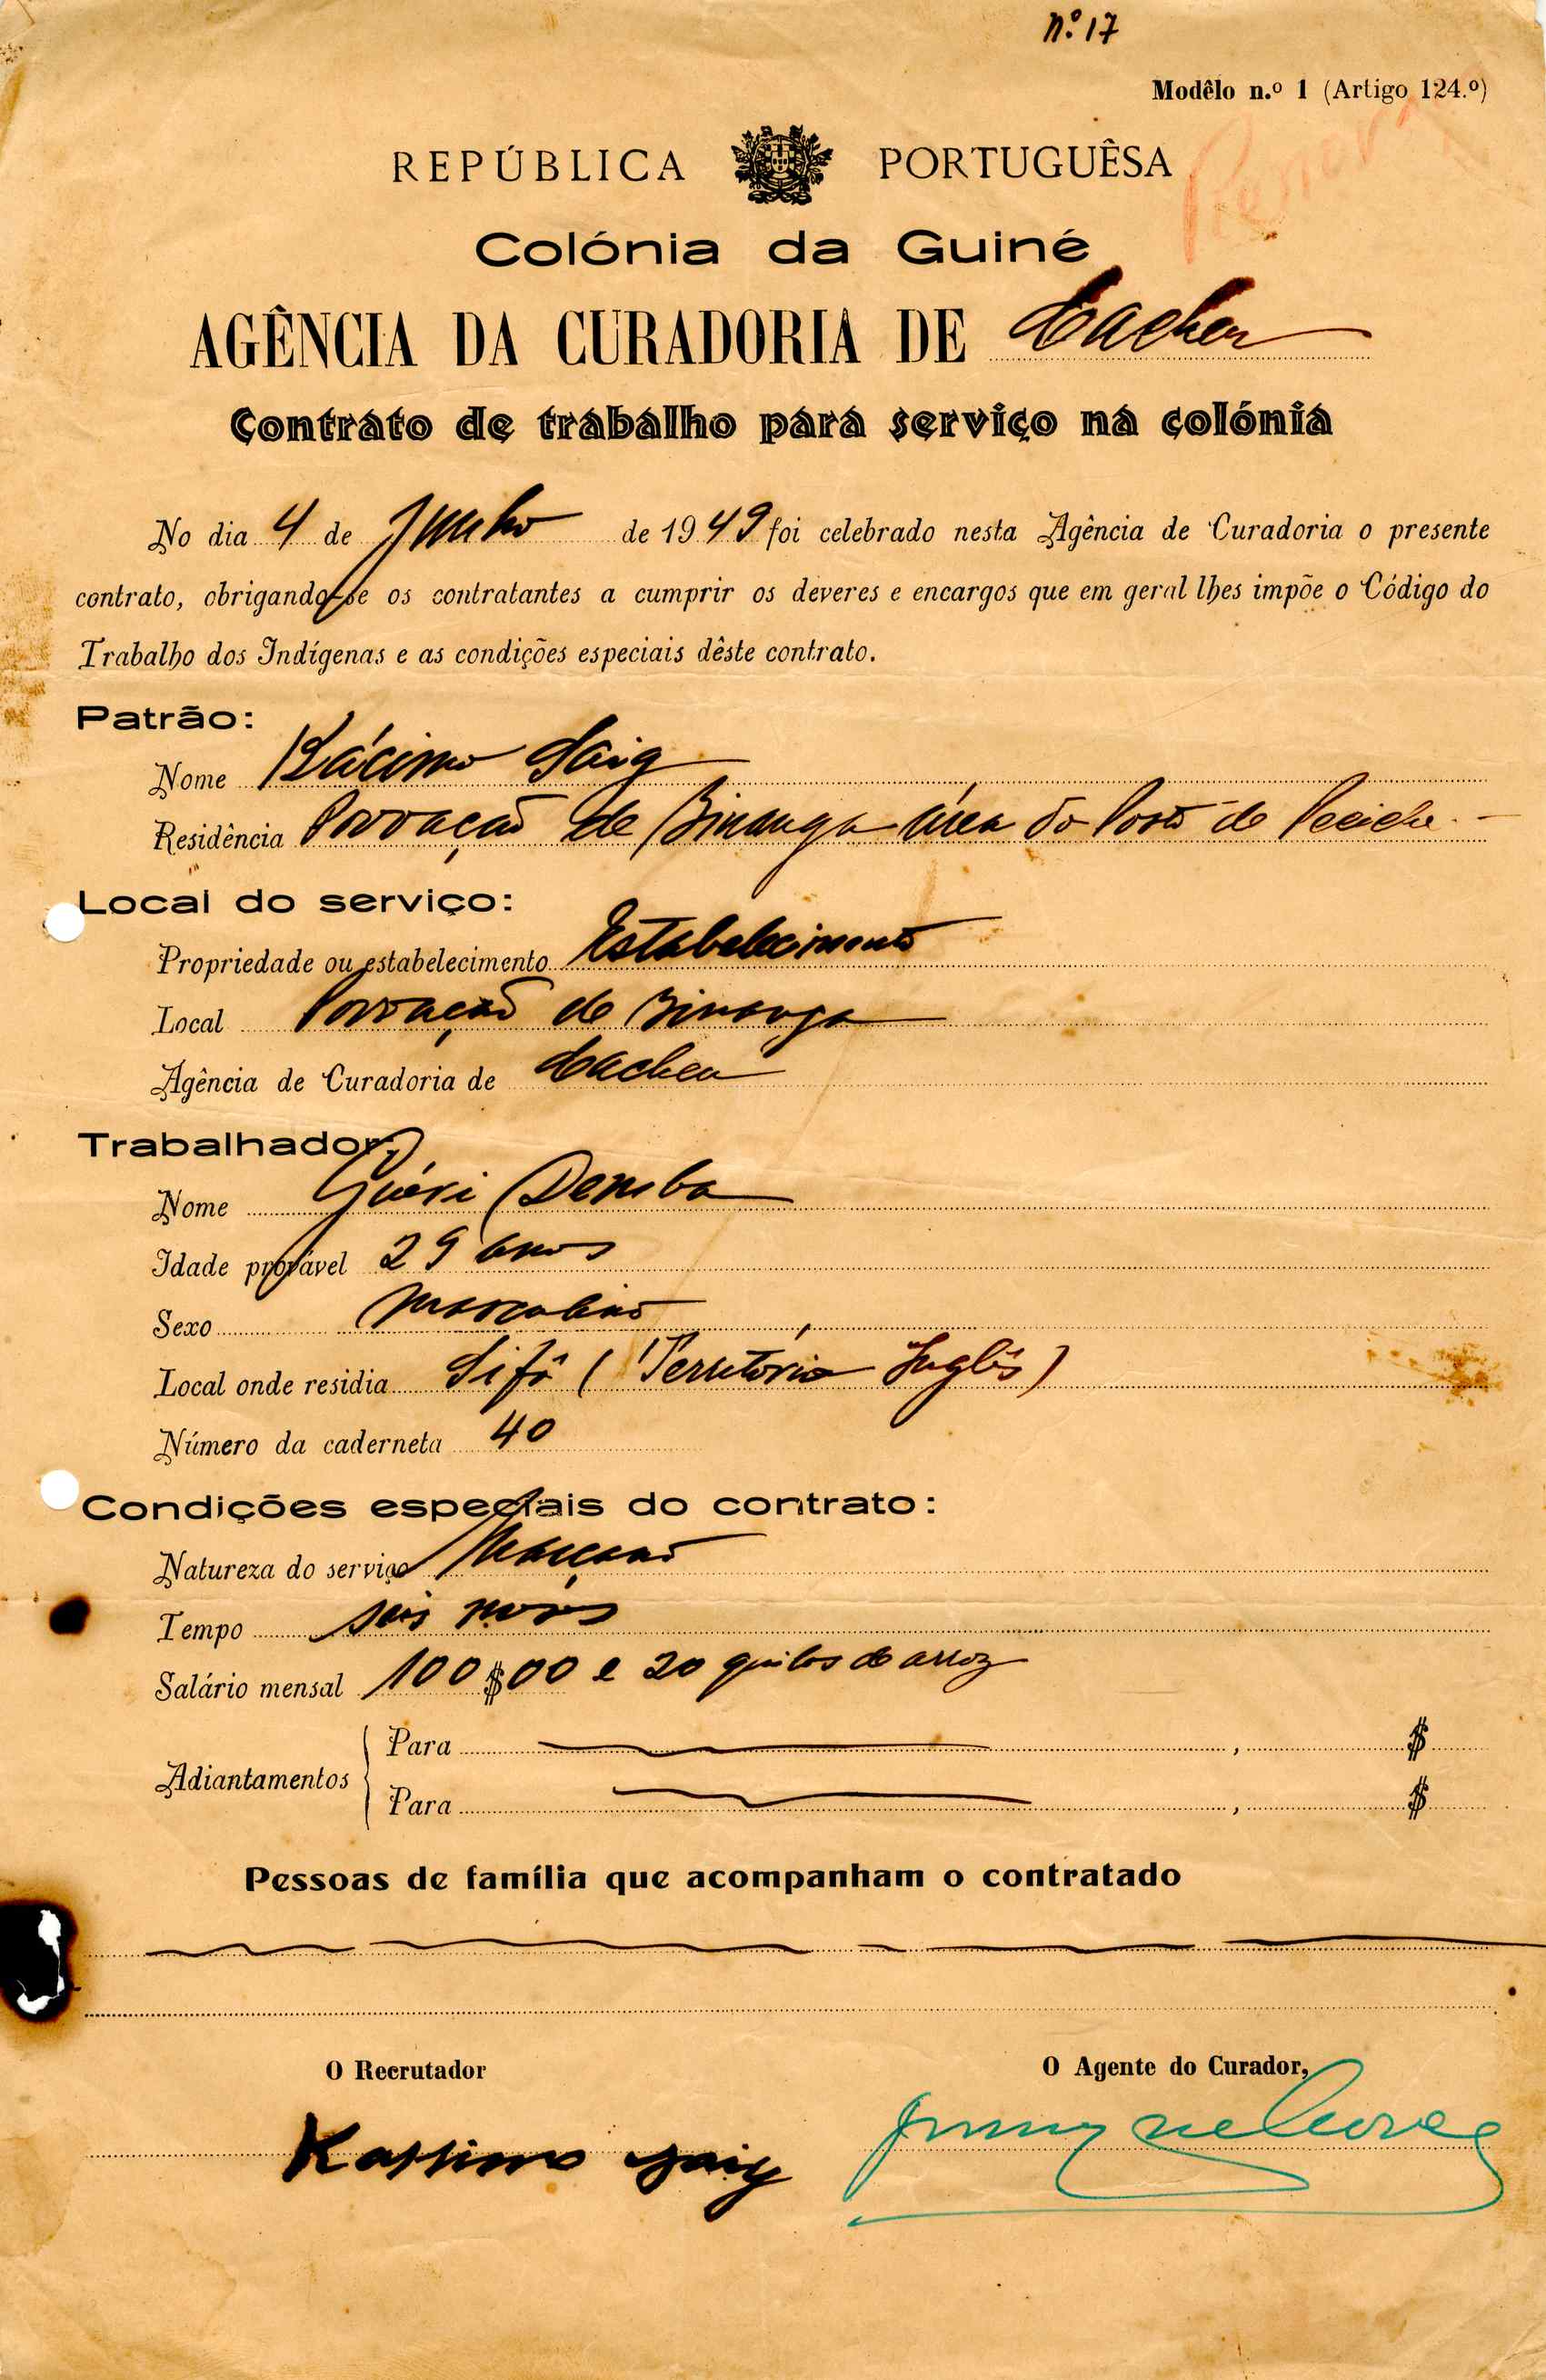 n.º 17
Modêlo n.º 1 (Artigo 124.º)
REPÚBLICA PORTUGUÊSA
Colónia da Guiné
AGÊNCIA DA CURADORIA DE Cacheu
Contrato de trabalho para serviço na colónia
No dia 4 de Junho de 1949 foi celebrado nesta Agência de Curadoria o presente
contrato, obrigando-se os contratantes a cumprir os deveres e encargos que em geral lhes impõe o Código do
Trabalho dos Indígenas e as condições especiais dêste contrato.
Patrão:
Nome Kácimo Saig
Residência Povoação de Binanga área do Posto de Pecicke
Local do serviço:
Propriedade ou estabelecimento Estabelecimento
Local Povoação de Binanga
Agência de Curadoria de Cacheu
Trabalhador:
Nome Demba
Idade provável 29 anos
Sexo masculino
Local onde residia Sifô (Território Inglês)
Número da caderneta 40
Condições especiais do contrato:
Natureza do serviço Marçano
Tempo seis mêses
Salário mensal 100$00 e 20 quilos de arroz
Adiantamentos
Para , $
Para , $
Pessoas de família que acompanham o contratado
O Recrutador O Agente do Curador,
Kassimo Saig